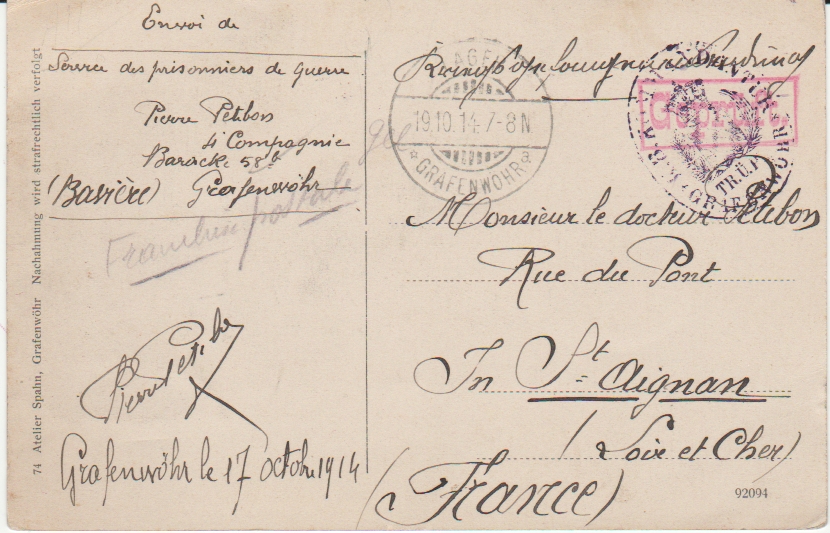 Envoi de
Service des prisonniers de Guerre
Pierre Petibon
4e Compagnie
Baracke 58b
(Bavière) Grafenwöhr
Franchise postale
Pierre Petibon
Grafenwöhr le 17 octobre 1914
74 Atelier Spahn, Grafenwöhr Nachahmung wird strafrechtlich verfolgt
LAGER
19.10.14.7-8N
* GRAFENWÖHR a
Geprüft.
TR.ÜB.PL.
GRAFENWÖHR
Monsieur le docteur Petibon
Rue du Pont
In St Aignan
(Loir et Cher)
(France)
92094